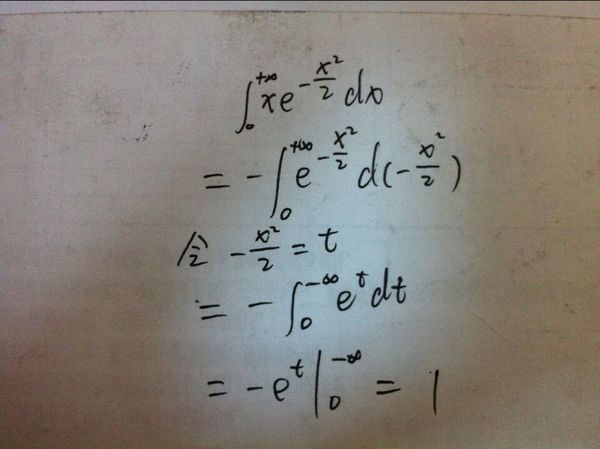 ∫₀^{+∞} xe^{-x²/2} dx
= -∫₀^{+∞} e^{-x²/2} d(-x²/2)
令 -x²/2 = t
= -∫₀^{-∞} e^t dt
= -e^t |₀^{-∞} = 1